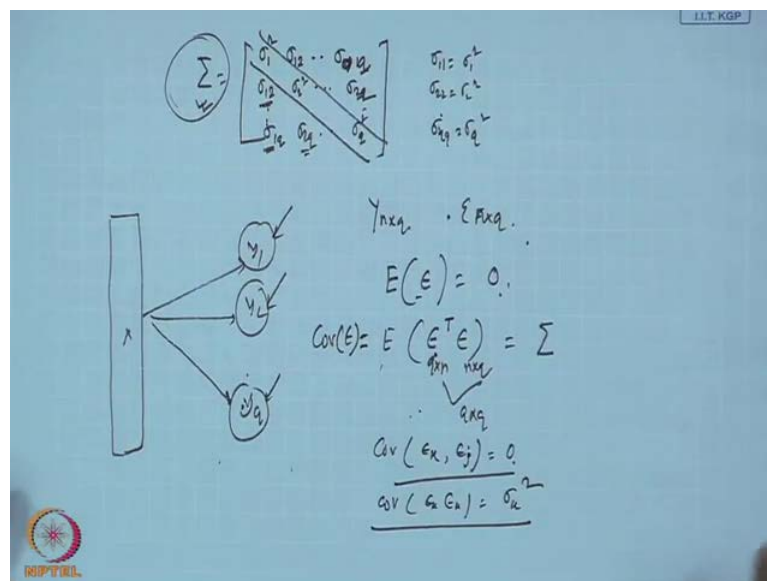 I.I.T. KGP
Σ = [ σ₁² σ₁₂ ·· σ₁q
σ₁₂ σ₂² ··· σ₂q
σ₁q σ₂q · σq² ]
σ₁₁ = σ₁²
σ₂₂ = σ₂²
σqq = σq²
Yn×q · Ɛn×q.
E(ϵ) = 0.
Cov(ϵ) = E (ϵᵀ ϵ) = Σ
q×n n×q
q×q
Cov (ϵk, ϵj) = 0.
cov (ϵk ϵk) = σk²
x
y₁
y₂
yq
NPTEL